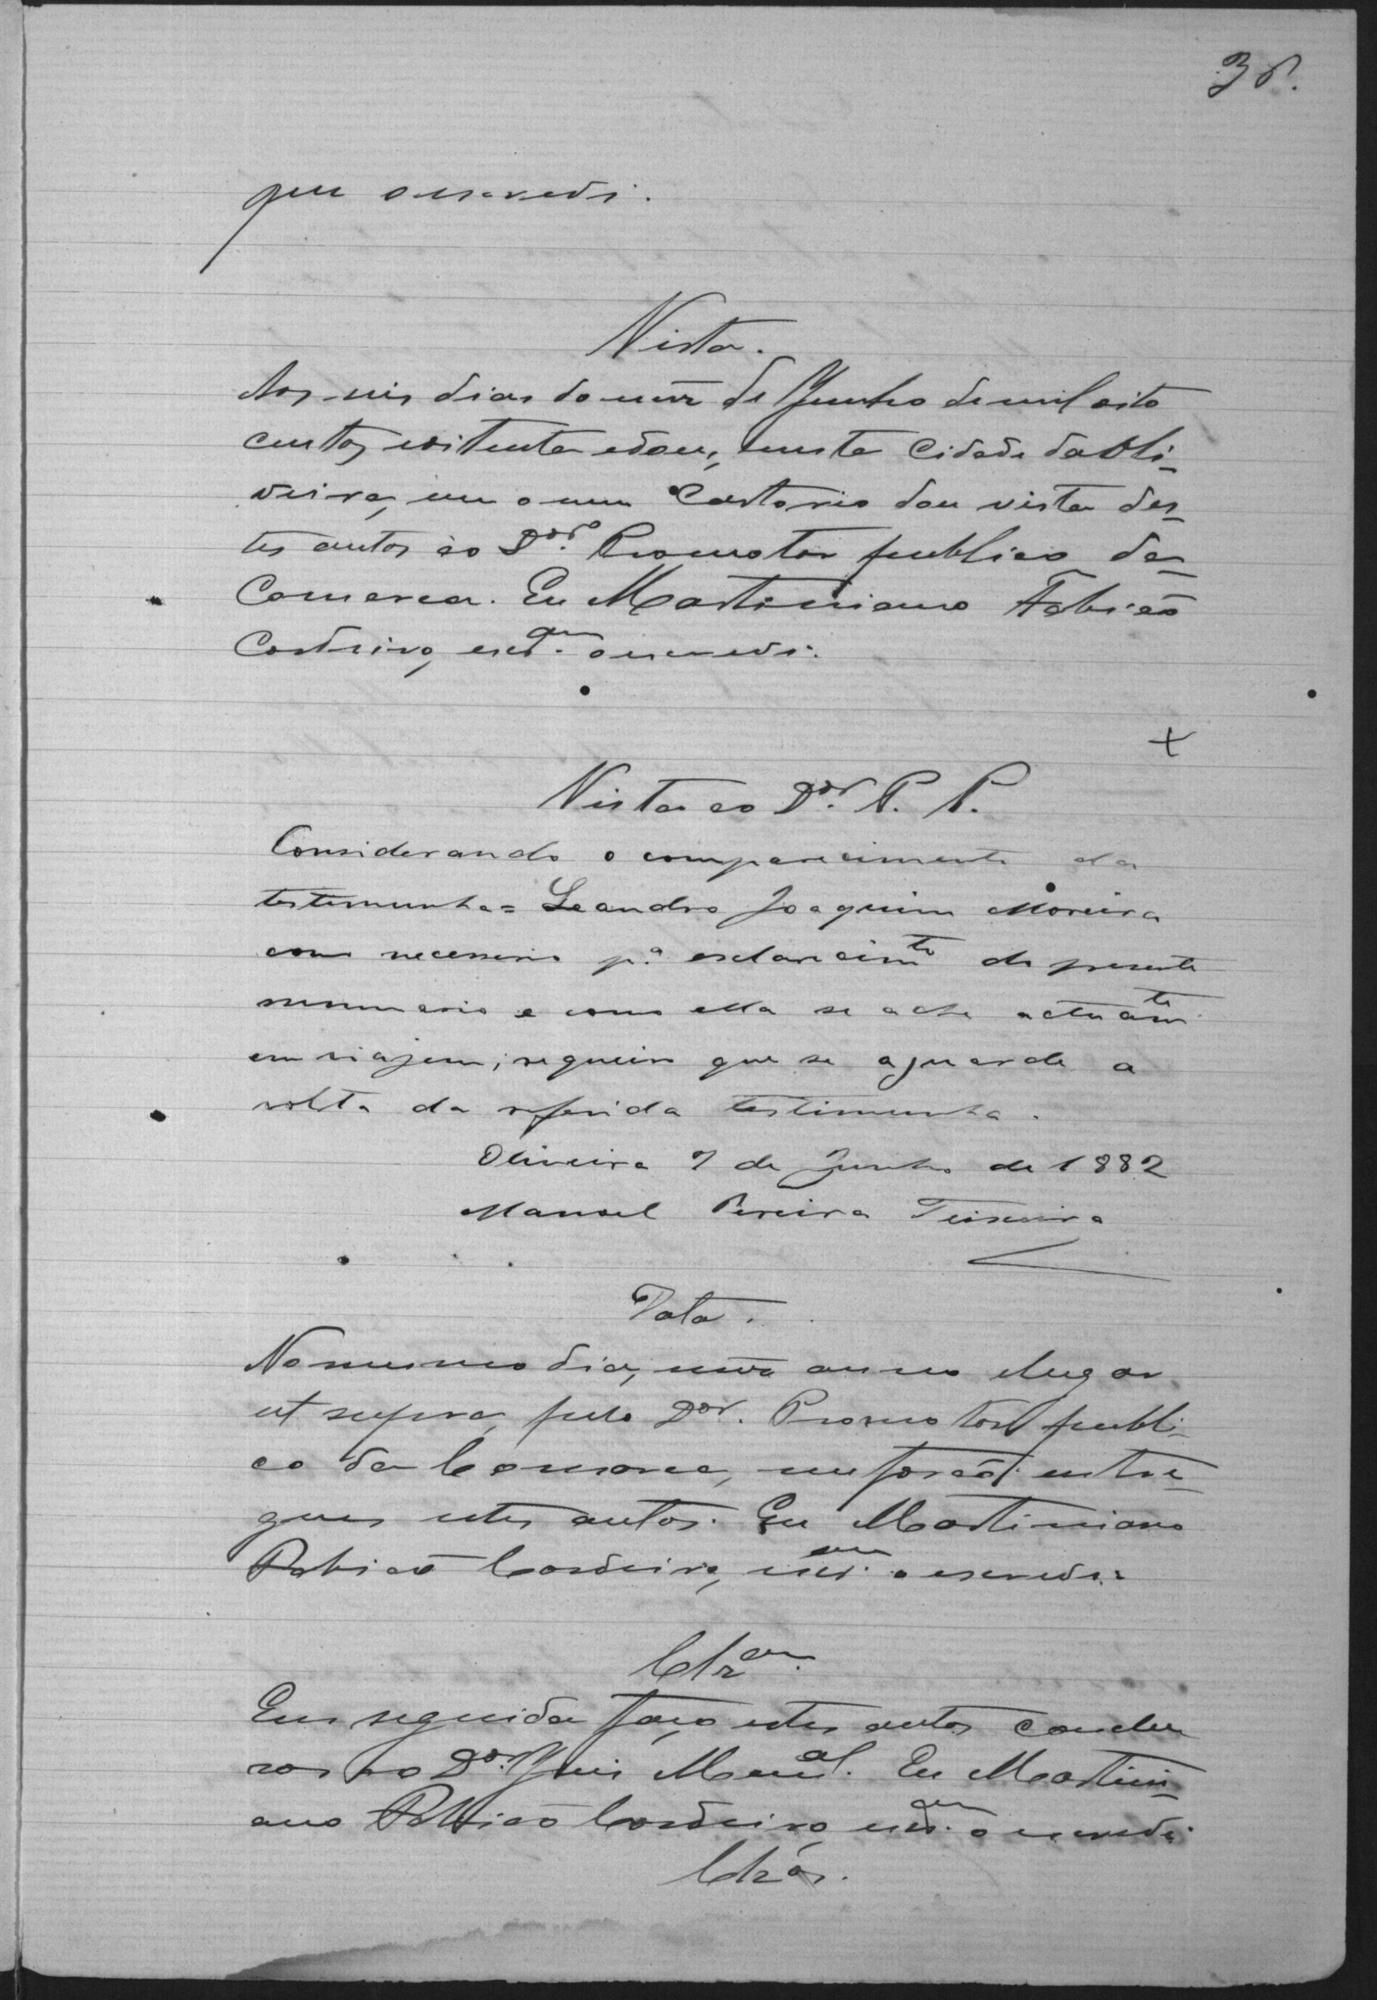 que o escrevi.
Vista.
Aos seis dias do mez de Junho de mil oito
centos e oitenta e dous, nesta Cidade da Oli-
veira, em o meu Cartorio dou vista des-
tes autos ao Dor. Promotor publico da
Comarca. Eu Martiniano Fabião
Cordeiro, escram. o escrevi.
+
Vista ao Dor. P. P.
Considerando o comparecimento da
testemunha = Leandro Joaquim Moreira
como necessario pa. esclarecimto do presente
summario e como ella se ache actualmte
em viajem, requeiro que se aguarde a
volta da referida testimunha.
Oliveira 7 de Junho de 1882
Manoel Pereira Teixeira
Data.
No mesmo dia, mez anno e lugar
ut supra, pelo Dor. Promotor publi-
co da Comarca, me forão entre-
gues estes autos. Eu Martiniano
Fabião Cordeiro, escram. o escrevi.
Clzam.
Em seguida faço estes autos conclu
sos ao Dor. Juis Mcnal. Eu Martini-
ano Fabião Cordeiro, escram. o escrevi.
Clzos.